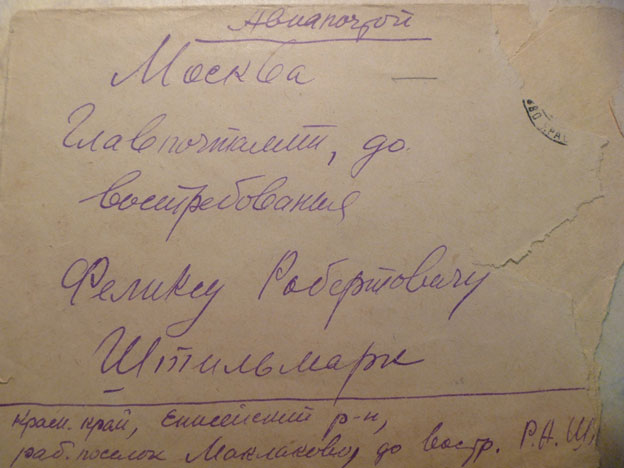 Авиапочтой
Москва
Главпочтамт, до
востребования
Феликсу Робертовичу
Штильмарк
Красн. край, Енисейский р-н,
раб. поселок Маклаково, до востр. Р.А. Ш